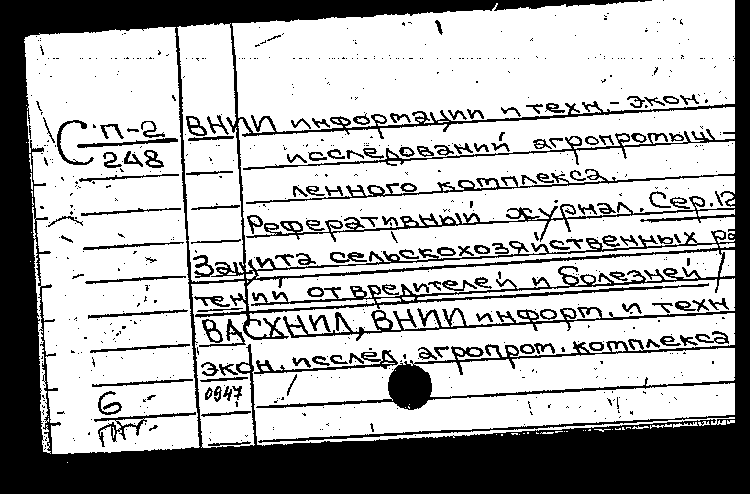 С П-2 ВНИИ информации и техн.-экон.
248 исследований агропромыш-
ленного комплекса.
Реферативный журнал. Сер.12
Защита сельскохозяйственных ра
тений от вредителей и болезней /
ВАСХНИЛ, ВНИИ информ. и техн
экон. исслед. агропром. комплекса
6 0947